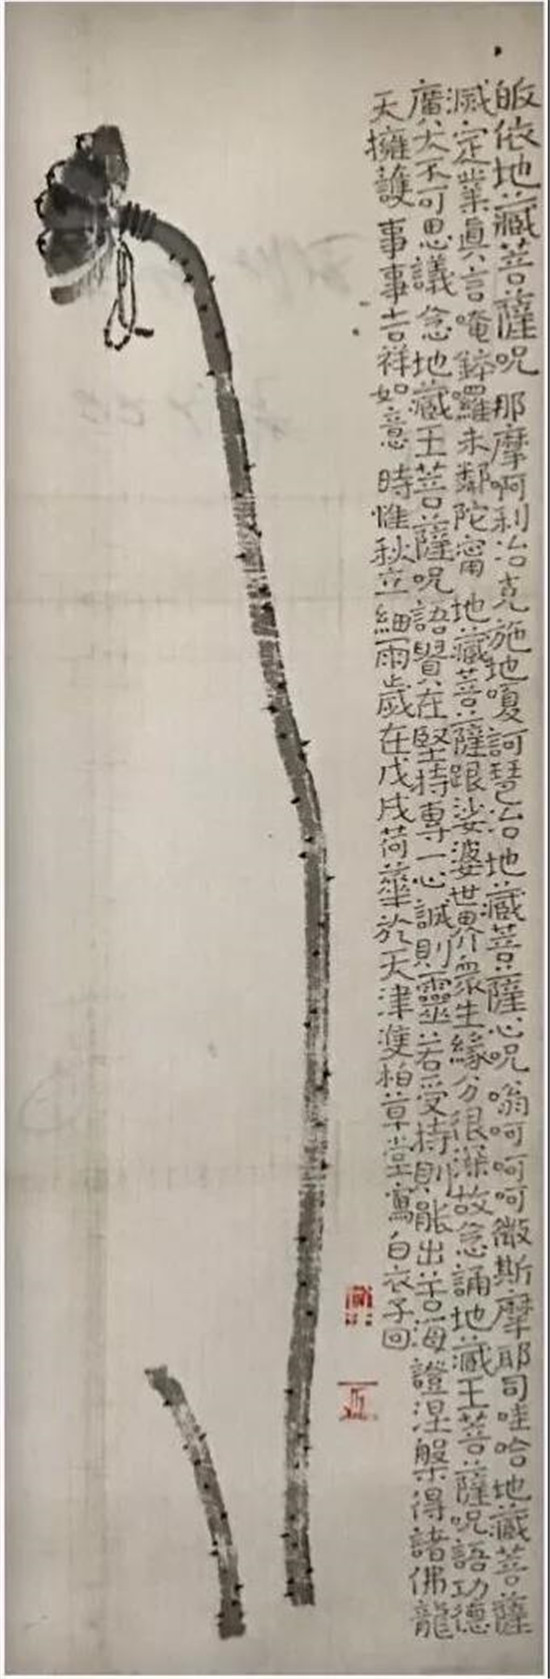 皈依地藏菩薩呪 那摩啊利治克施地嗄訶琶治地藏菩薩心呪嗡呵呵呵微斯摩耶司哇哈地藏菩薩
滅定業真言唵鉢羅末鄰陀甯 地藏菩薩跟娑婆世界衆生緣分很深故念誦地藏王菩薩呪語功德
廣大不可思議 念地藏王菩薩呪語貴在堅持專一心誠則靈若受持則能出苦海證涅槃得諸佛龍
天擁護 事事吉祥如意 時惟秋立細雨歲在戊戌荷華於天津雙柏草堂寫白衣子回